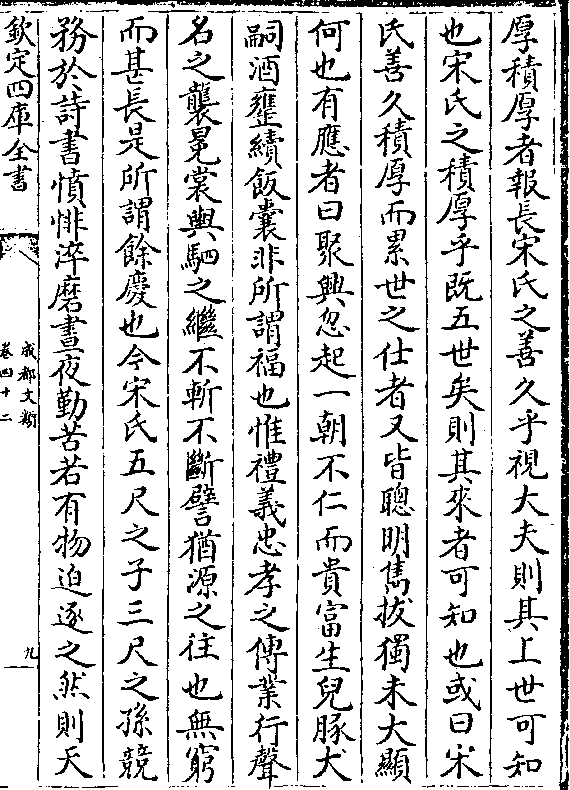 厚積厚者報長宋氏之善久乎視大夫則其上世可知
也宋氏之積厚乎既五世矣則其來者可知也或曰宋
氏善久積厚而累世之仕者又皆聰明雋拔獨未大顯
何也有應者曰聚興忽起一朝不仁而貴富生兒豚犬
嗣酒壅續飯囊非所謂福也惟禮義忠孝之傳業行聲
名之襲冕裳輿駟之繼不斬不斷譬猶源之往也無窮
而甚長是所謂餘慶也今宋氏五尺之子三尺之孫競
務於詩書憤悱淬磨晝夜勤苦若有物迫逐之然則天
欽定四庫全書
成都文類
卷四十二
九